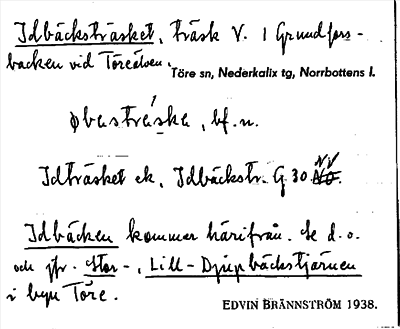 Idbäcksträsket, träsk V. i Grundfors-
backen vid Töreälven.
Töre sn, Nederkalix tg, Norrbottens l.
bf. n.
Idträsket ek, Idbäckstr. G 30 NV
Idbäcken kommer härifrån. Se d. o.
och jfr. Stor-, Lill-Djupbäckstjärnen
i byn Töre.
EDVIN BRÄNNSTRÖM 1938.